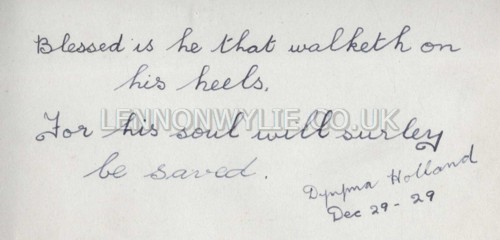 Blessed is he that walketh on
his heels.
LENNONWYLIE.CO.UK
For his soul will surley
be saved.
Dympma Holland
Dec 29 - 29